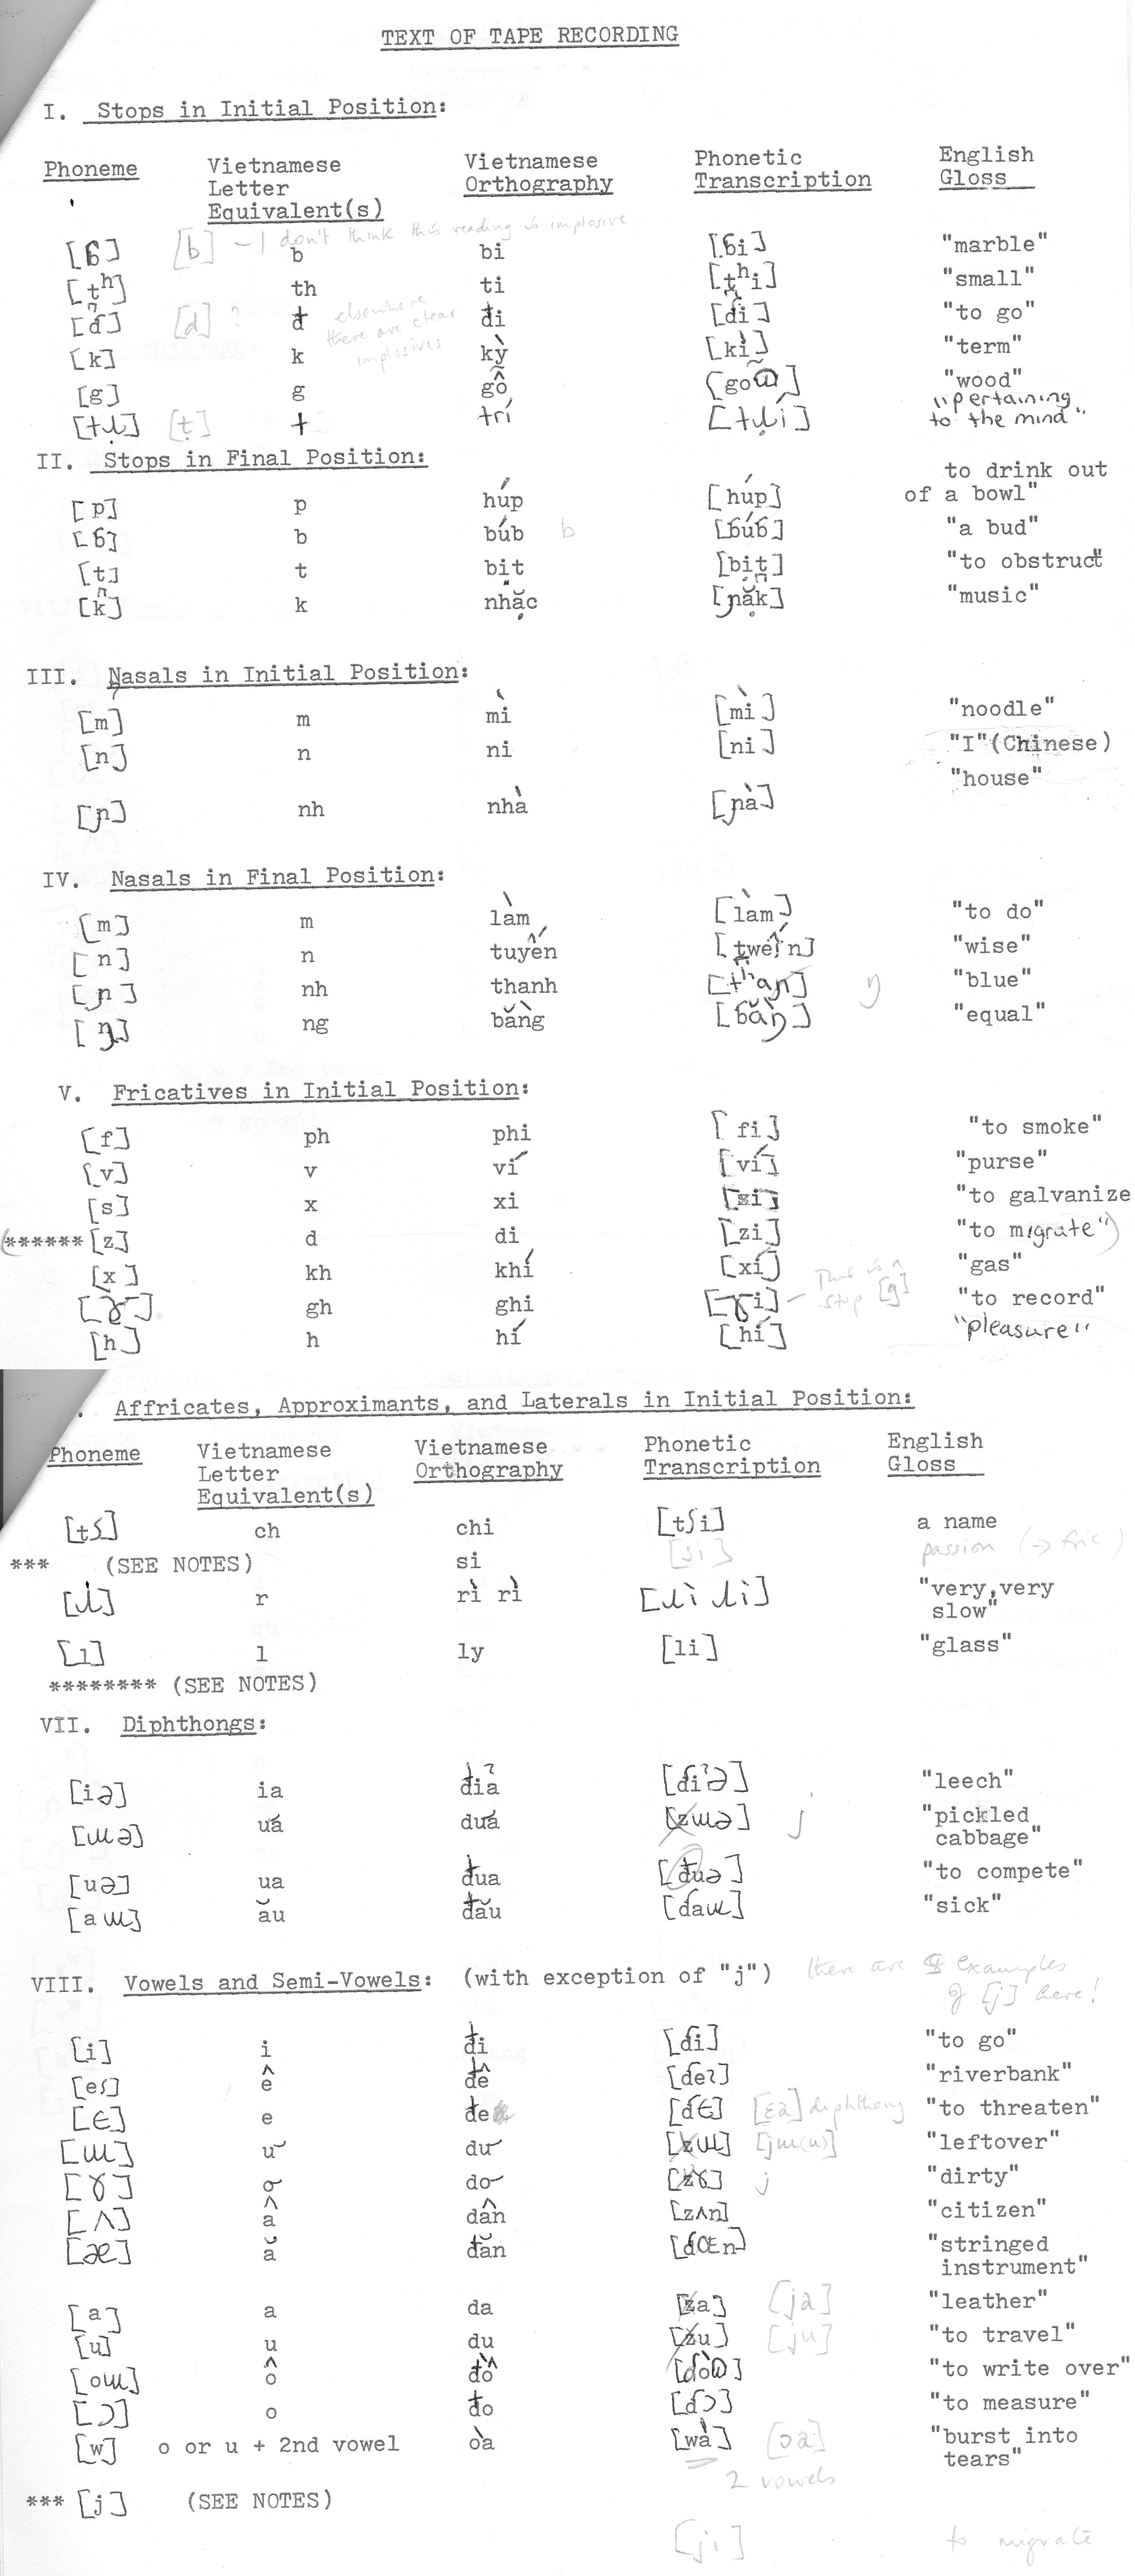 TEXT OF TAPE RECORDING
I. Stops in Initial Position:
Phoneme Vietnamese Letter Equivalent(s) Vietnamese Orthography Phonetic Transcription English Gloss
[b] - I don't think this reading is implosive
[ɓ] b bi [ɓi] "marble"
[t̪ʰ] th ti [t̪ʰi] "small"
[ɗ] [d]? đ elsewhere there are clear implosives đi [ɗi] "to go"
[k] k kỳ [kì] "term"
[g] g gỗ "wood"
[ṭ] trí "pertaining to the mind"
II. Stops in Final Position:
[p] p húp [húp] to drink out of a bowl"
[ɓ] b búb b [ɓúɓ] "a bud"
[t] t bịt [bịt] "to obstruct"
[k̚] k nhặc [ɲặk̚] "music"
III. Nasals in Initial Position:
[m] m mì [mì] "noodle"
[n] n ni [ni] "I"(Chinese)
[ɲ] nh nhà [ɲà] "house"
IV. Nasals in Final Position:
[m] m làm [làm] "to do"
[n] n tuyến "wise"
[ɲ] nh thanh [t̪ʰaɲ] ŋ "blue"
[ŋ] ng bằng [ɓằŋ] "equal"
V. Fricatives in Initial Position:
[f] ph phi [fi] "to smoke"
[v] v ví [ví] "purse"
[s] x xi [si] "to galvanize
(****** [z] d di [zi] "to migrate")
[x] kh khí [xí] "gas"
[ɣ] gh ghi [ɣi] - This is a stop [g] "to record"
[h] h hí [hí] "pleasure"
. Affricates, Approximants, and Laterals in Initial Position:
Phoneme Vietnamese Letter Equivalent(s) Vietnamese Orthography Phonetic Transcription English Gloss
[tʃ] ch chi [tʃi] a name
*** (SEE NOTES) si [si] passion (→ fric)
[ɹ] r rì rì [ɹì ɹì] "very,very slow"
[l] l ly [li] "glass"
******** (SEE NOTES)
VII. Diphthongs:
[iə] ia đỉa [ɗỉə] "leech"
[ɯə] uá duá [zɯə] j "pickled cabbage"
[uə] ua đua [đuə] "to compete"
[aɯ] ău đău [ɗaɯ] "sick"
VIII. Vowels and Semi-Vowels: (with exception of "j") there are examples of [j] here!
[i] i đi [ɗi] "to go"
ê đê "riverbank"
[ɛ] e đe [ɗɛ] [ɛa] diphthong "to threaten"
[ɯ] ư dư [zɯ] [jɯ(u)] "leftover"
[ɤ] ơ dơ [zɤ] j "dirty"
[ʌ] â dân [zʌn] "citizen"
[æ] ă đăn [ɗɶn] "stringed instrument"
[a] a da [za] [ja] "leather"
[u] u du [zu] [ju] "to travel"
[oɯ] ô đồ "to write over"
[ɔ] o đo [ɗɔ] "to measure"
[w] o or u + 2nd vowel òa [wà] [ɔa] 2 vowels "burst into tears"
*** [j] (SEE NOTES)
[ji] to migrate